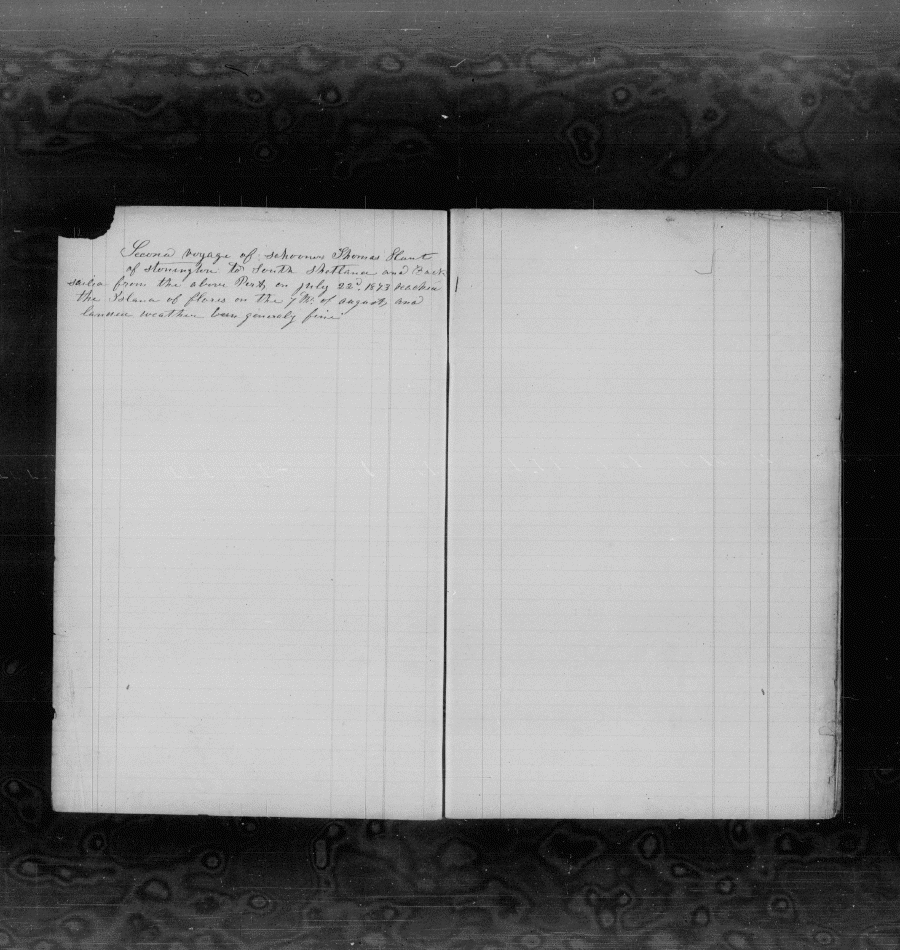 Second voyage of schooner Thomas Hunt
of stonington to South Shetland and Back
sailed from the above Port, on July 22d. 1873 reached
the Island of flores on the 9th. of august, and
landed weather been generely fine